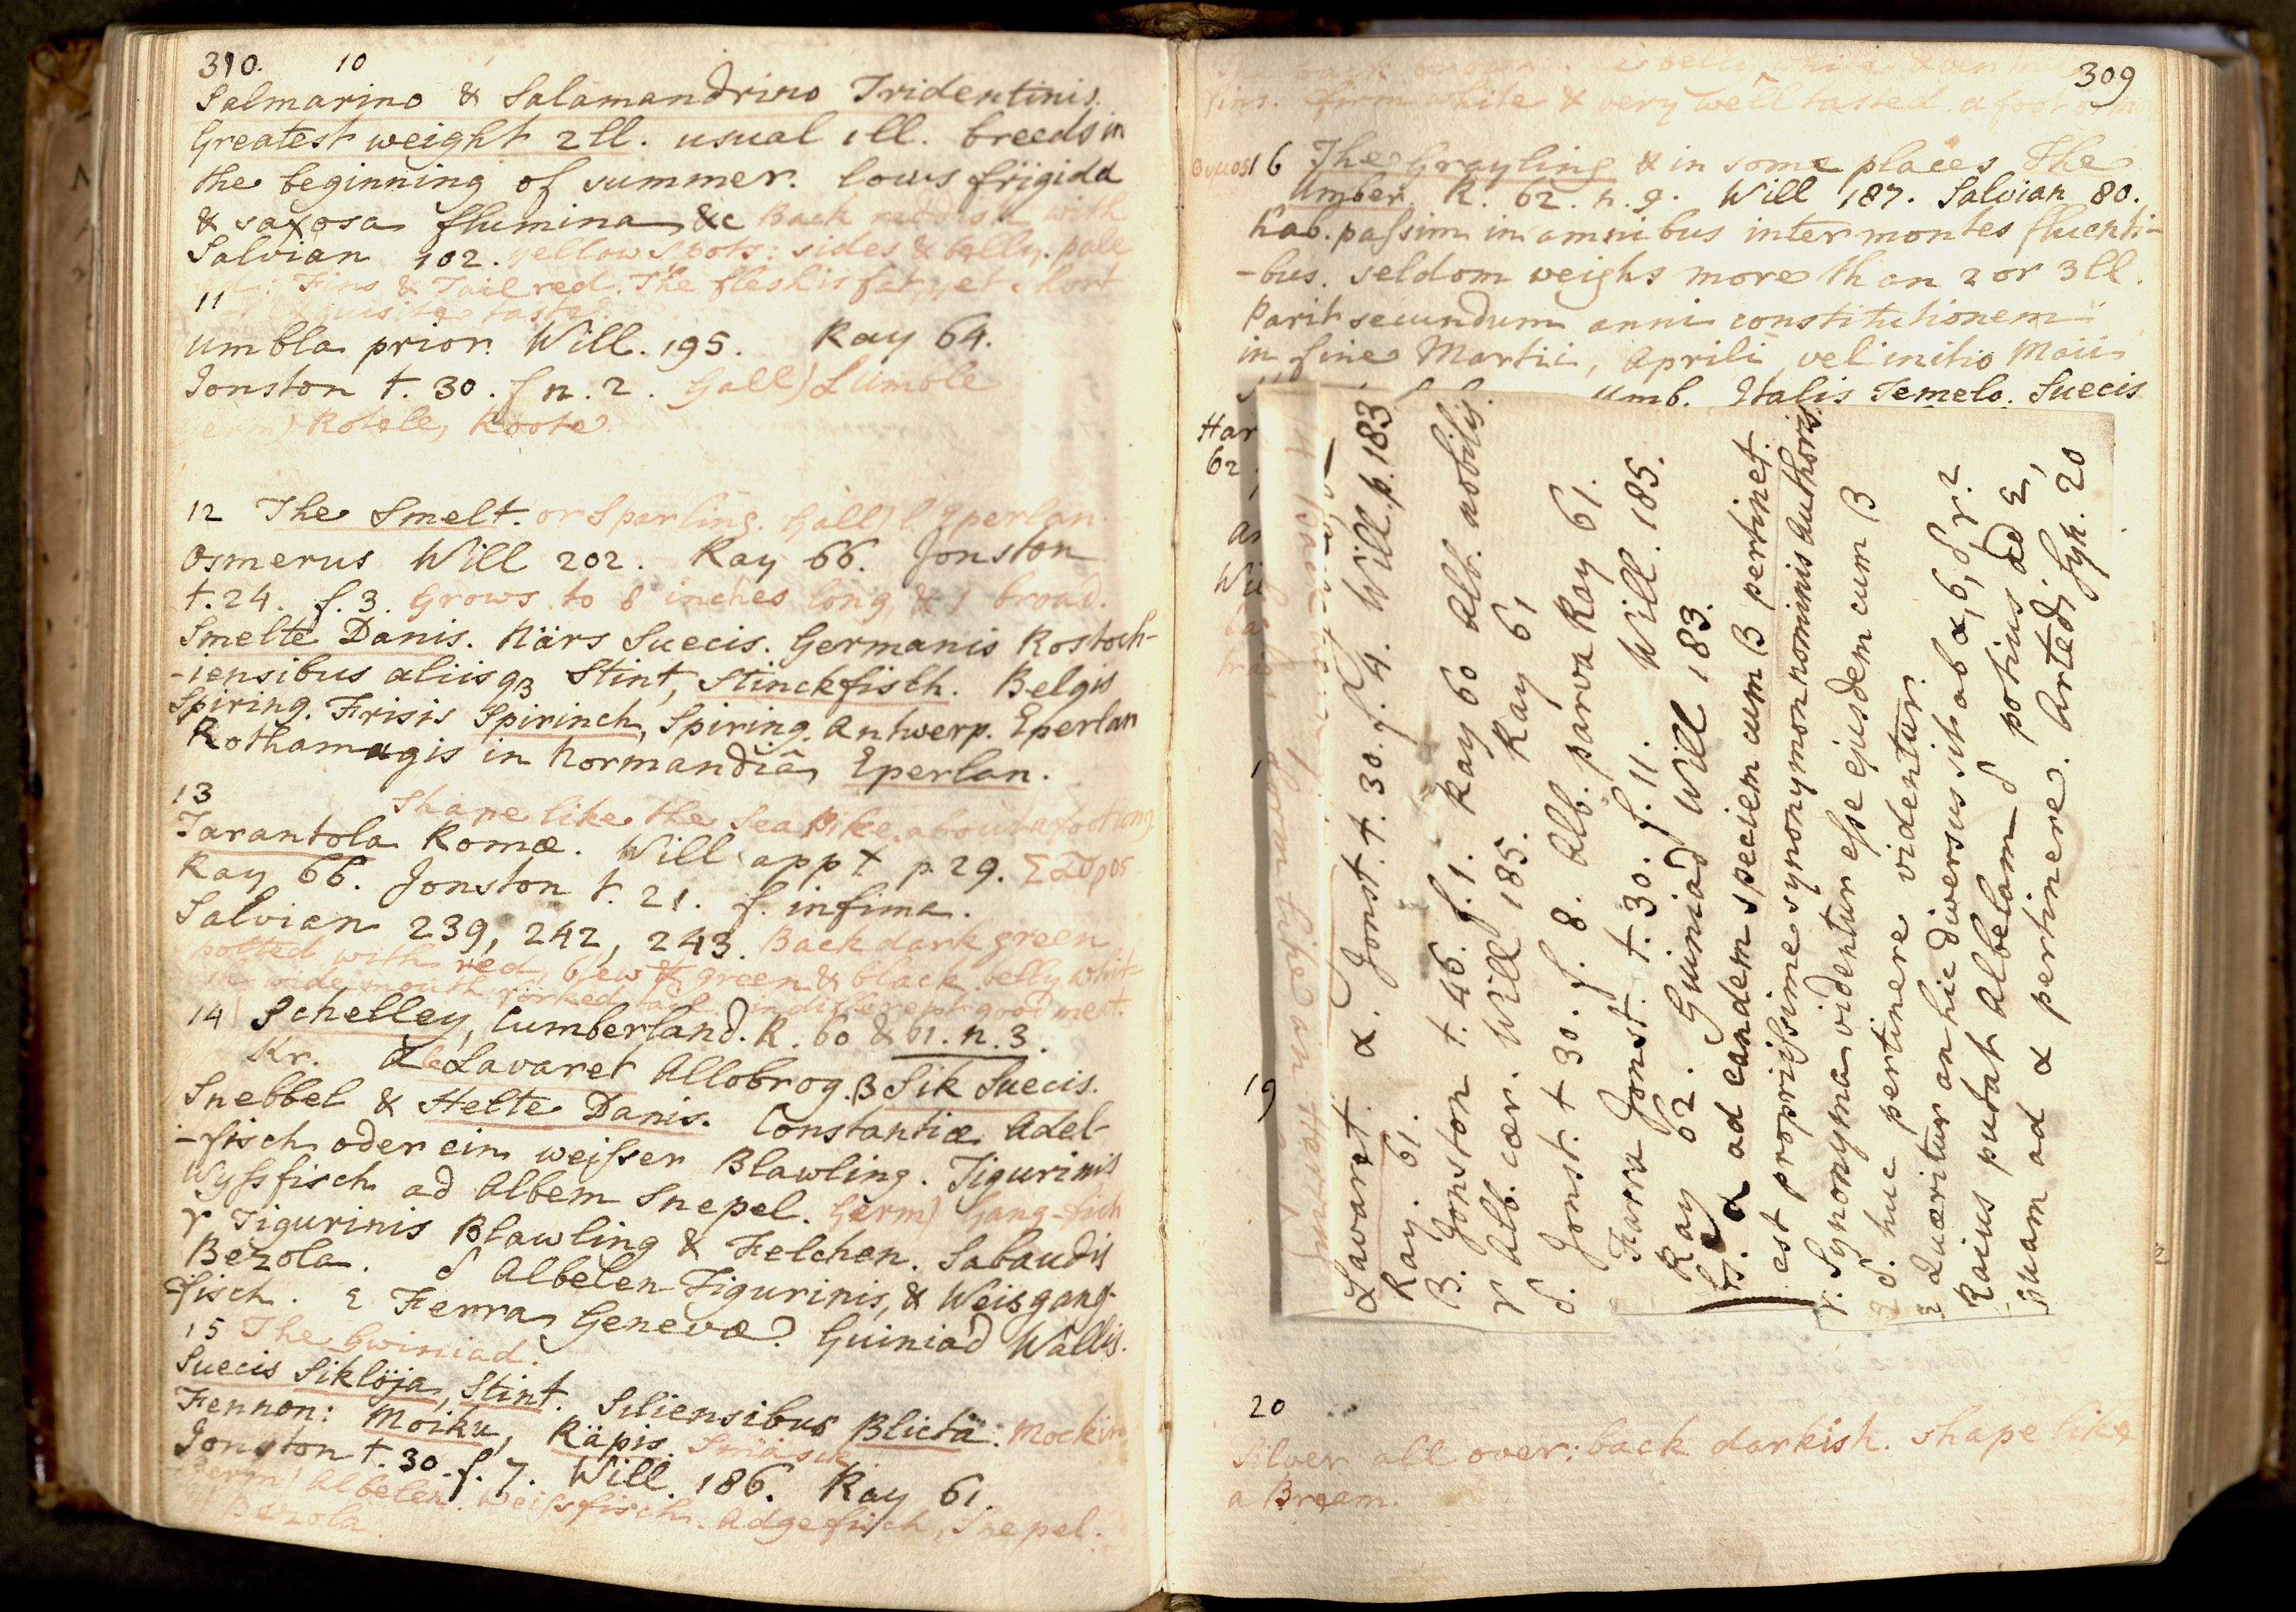 310. 10
Salmarino & Salamandrino Tridentinis.
Greatest weight 2 ll. usual 1 ll. breeds in
the beginning of summer. lovis frigida
& saxosa flumina &c Back reddish with
Salvian 102. yellow spots: sides & belly pale
Fins & Tail red. The flesh is fat yet short
11 exquisite taste
Umbla prior. Will. 195. Ray 64.
Jonston t. 30. f n. 2. Gall) L'umble
Rotele, Roote
12 The Smelt. or Sparling. Gall) l'Eperlan
Osmerus Will 202. Ray 66. Jonston
t. 24. f. 3. Grows to 8 inches long, & 1 broad.
Smelte Danis. Närs Suecis. Germanis Rostoch-
-iensibus aliisq3 Stint, Stinckfisch. Belgis
Spiring. Frisis Spirinch, Spiring. Antwerp. Eperlan
Rothamagis in Normandiâ Eperlan.
13 Shape like the Sea Pike. about a foot long
Tarantola Romæ. Will appx p. 29. Σαυρος
Ray 66. Jonston t. 21. f. infima.
Salvian 239, 242, 243. Back dark green
potted with red, blew & green & black. belly whit-
wide mouth. forked tail. indifferent good meat.
14 Schelley, Cumberland. R. 60 & 61. n. 3.
Kr. α le Lavaret Allobrog. β Sik Suecis.
Snebbel & Helte Danis. Constantiæ Adel-
-fisch oder ein weisser Blawling. Tigurinis
Wyssfisch ad Albem Snepel. Germ) Gang-fich
γ Tigurinis Blawling & Felchen. Sabaudis
Bezola. δ Albelen Tigurinis, & Weisgang-
fisch. ε Ferra Genevæ? Guiniad Wallis.
15 The Gwiniad.
Suecis Siklöja, Stint. Siliensibus Blicta: Mockin
Fennon: Moiku, Räpis. Smäsik
Jonston t. 30. f. 7. Will. 186. Ray 61.
Germ) Albelen. Weissfisch. Adgefisch, Snepel.
Bezola.
309
fins. firm white & very well tasted. a foot
16 The Grayling & in some places The
Umber. R. 62. n. 9. Will 187. Salvian 80.
hab. passim in amnibus inter montes fluenti-
-bus. seldom weighs more than 2 or 3 ll.
Parit secundum anni constitutionem
in fine Martii, Aprili vel initio Maii
Umb. Italis Temelo. Suecis
Har
62
Wil
19
α Lavaret. α. Jonst. t. 30. f. 4. Will. p. 183
Ray. 61.
β. Jonston t. 46. f. 1. Ray 60 Alb. nobilis.
γ Alb. cær. Will 185. Ray 61
δ. Jonst. t 30. f. 8. Alb. parva Ray 61.
Farra Jonst. t. 30. f. 11. Will. 185.
Ray 62. Guiniad Will 183.
α ad eandem speciem cum β pertinet.
est propriissime synonymon nominis authoris.
γ. Synonyma videntur esse ejusdem cum β
δ. huc pertinere videntur.
ε Quæritur an hic diversus sit ab α, β, δ γ. ?
Raius putat Albelam δ potius ad ε,
quam ad α pertinere. Artedi Syn. 20
20
Silver all over: back darkish. shape like
a Bream.